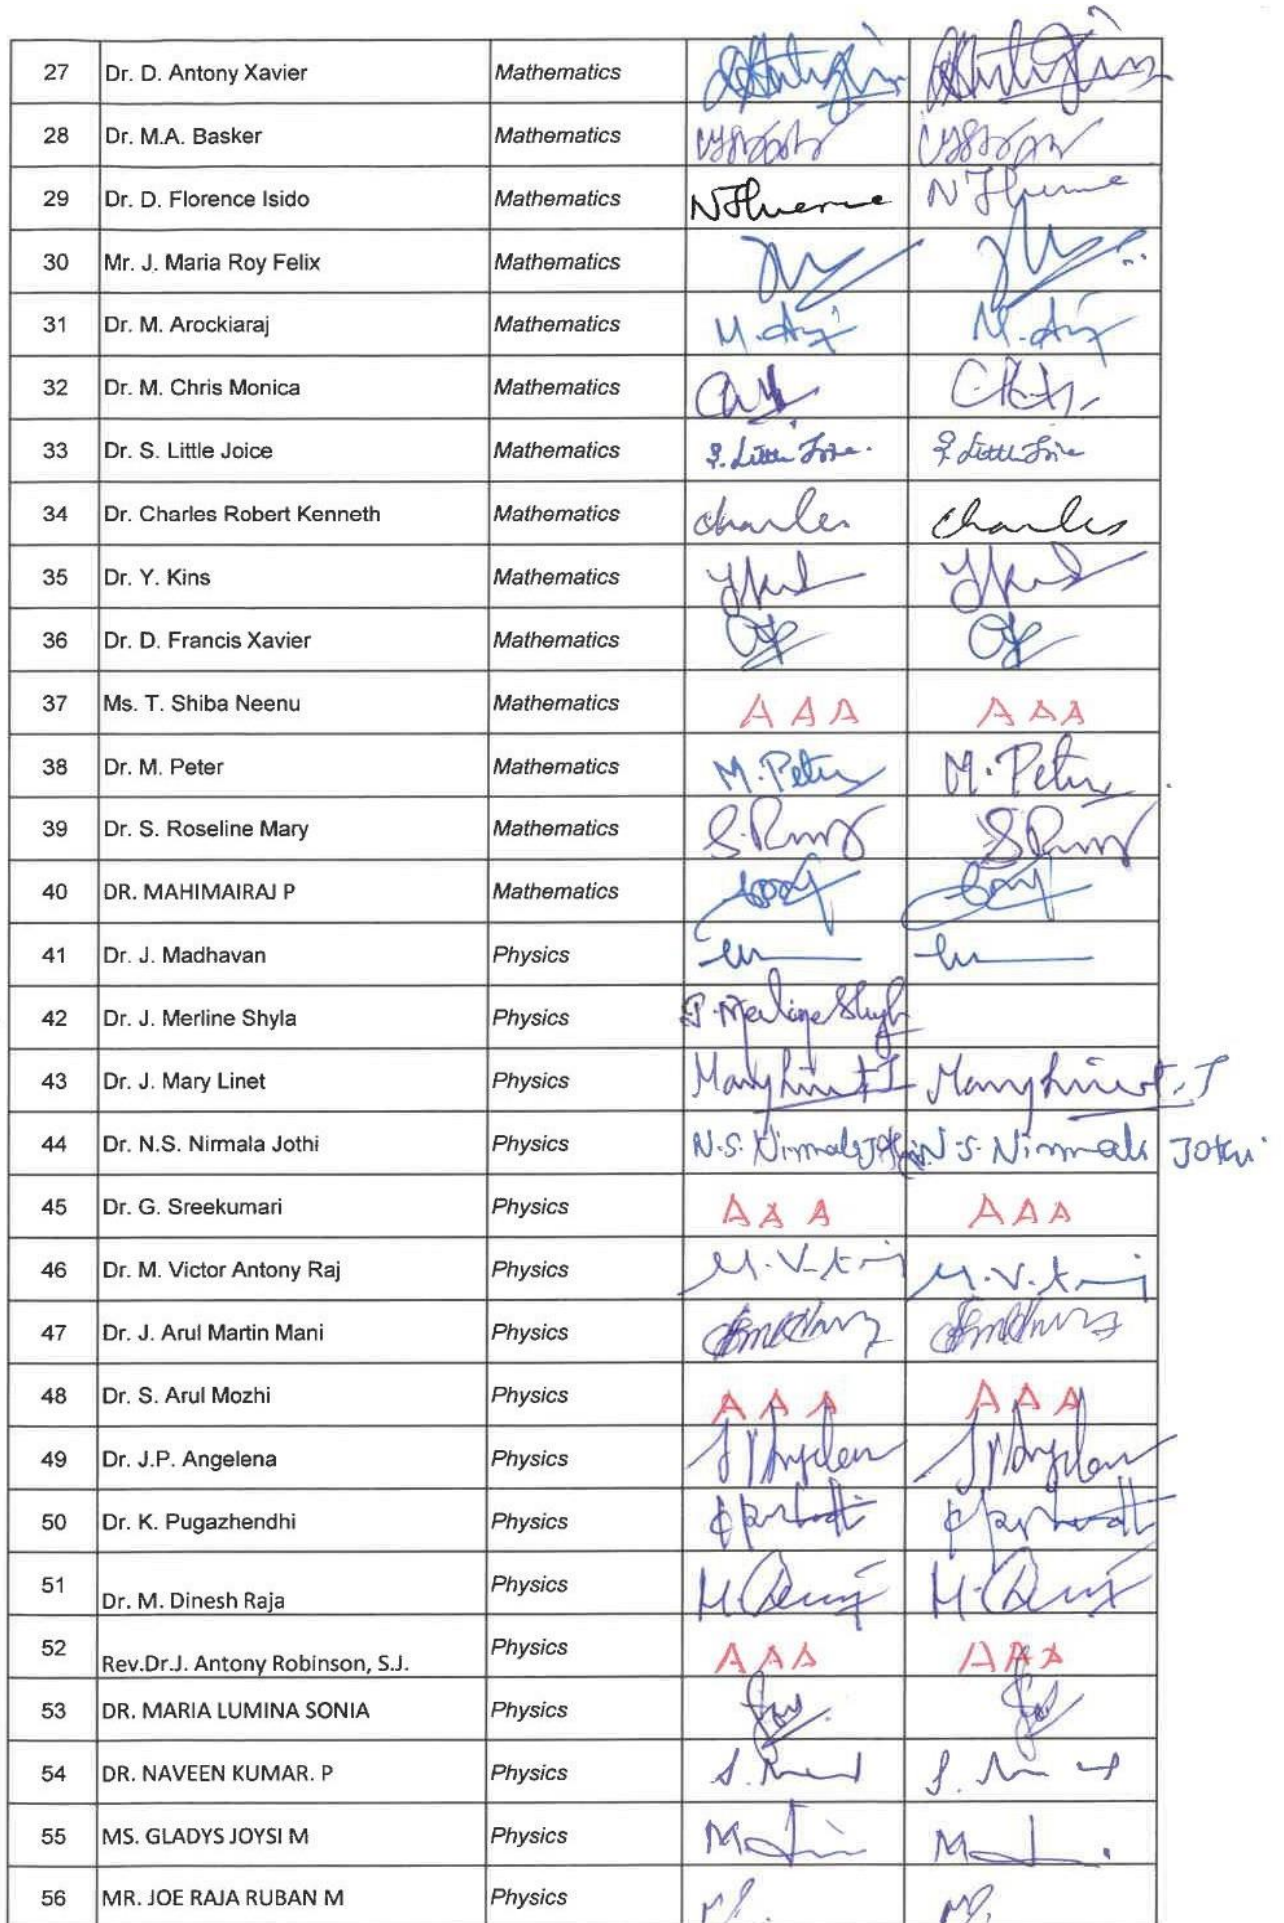 27 Dr. D. Antony Xavier Mathematics
28 Dr. M.A. Basker Mathematics
29 Dr. D. Florence Isido Mathematics
30 Mr. J. Maria Roy Felix Mathematics
31 Dr. M. Arockiaraj Mathematics
32 Dr. M. Chris Monica Mathematics
33 Dr. S. Little Joice Mathematics S. Little Joice. S. Little Joice
34 Dr. Charles Robert Kenneth Mathematics Charles Charles
35 Dr. Y. Kins Mathematics
36 Dr. D. Francis Xavier Mathematics
37 Ms. T. Shiba Neenu Mathematics A A A A A A
38 Dr. M. Peter Mathematics M. Peter M. Peter
39 Dr. S. Roseline Mary Mathematics
40 DR. MAHIMAIRAJ P Mathematics
41 Dr. J. Madhavan Physics
42 Dr. J. Merline Shyla Physics J. Merline Shyla
43 Dr. J. Mary Linet Physics Mary Linet J Mary Linet. J
44 Dr. N.S. Nirmala Jothi Physics N.S. Nirmala Jothi N.S. Nirmala Jothi
45 Dr. G. Sreekumari Physics A A A A A A
46 Dr. M. Victor Antony Raj Physics
47 Dr. J. Arul Martin Mani Physics
48 Dr. S. Arul Mozhi Physics A A A A A A
49 Dr. J.P. Angelena Physics
50 Dr. K. Pugazhendhi Physics
51 Dr. M. Dinesh Raja Physics
52 Rev.Dr.J. Antony Robinson, S.J. Physics A A A A A A
53 DR. MARIA LUMINA SONIA Physics
54 DR. NAVEEN KUMAR. P Physics
55 MS. GLADYS JOYSI M Physics
56 MR. JOE RAJA RUBAN M Physics